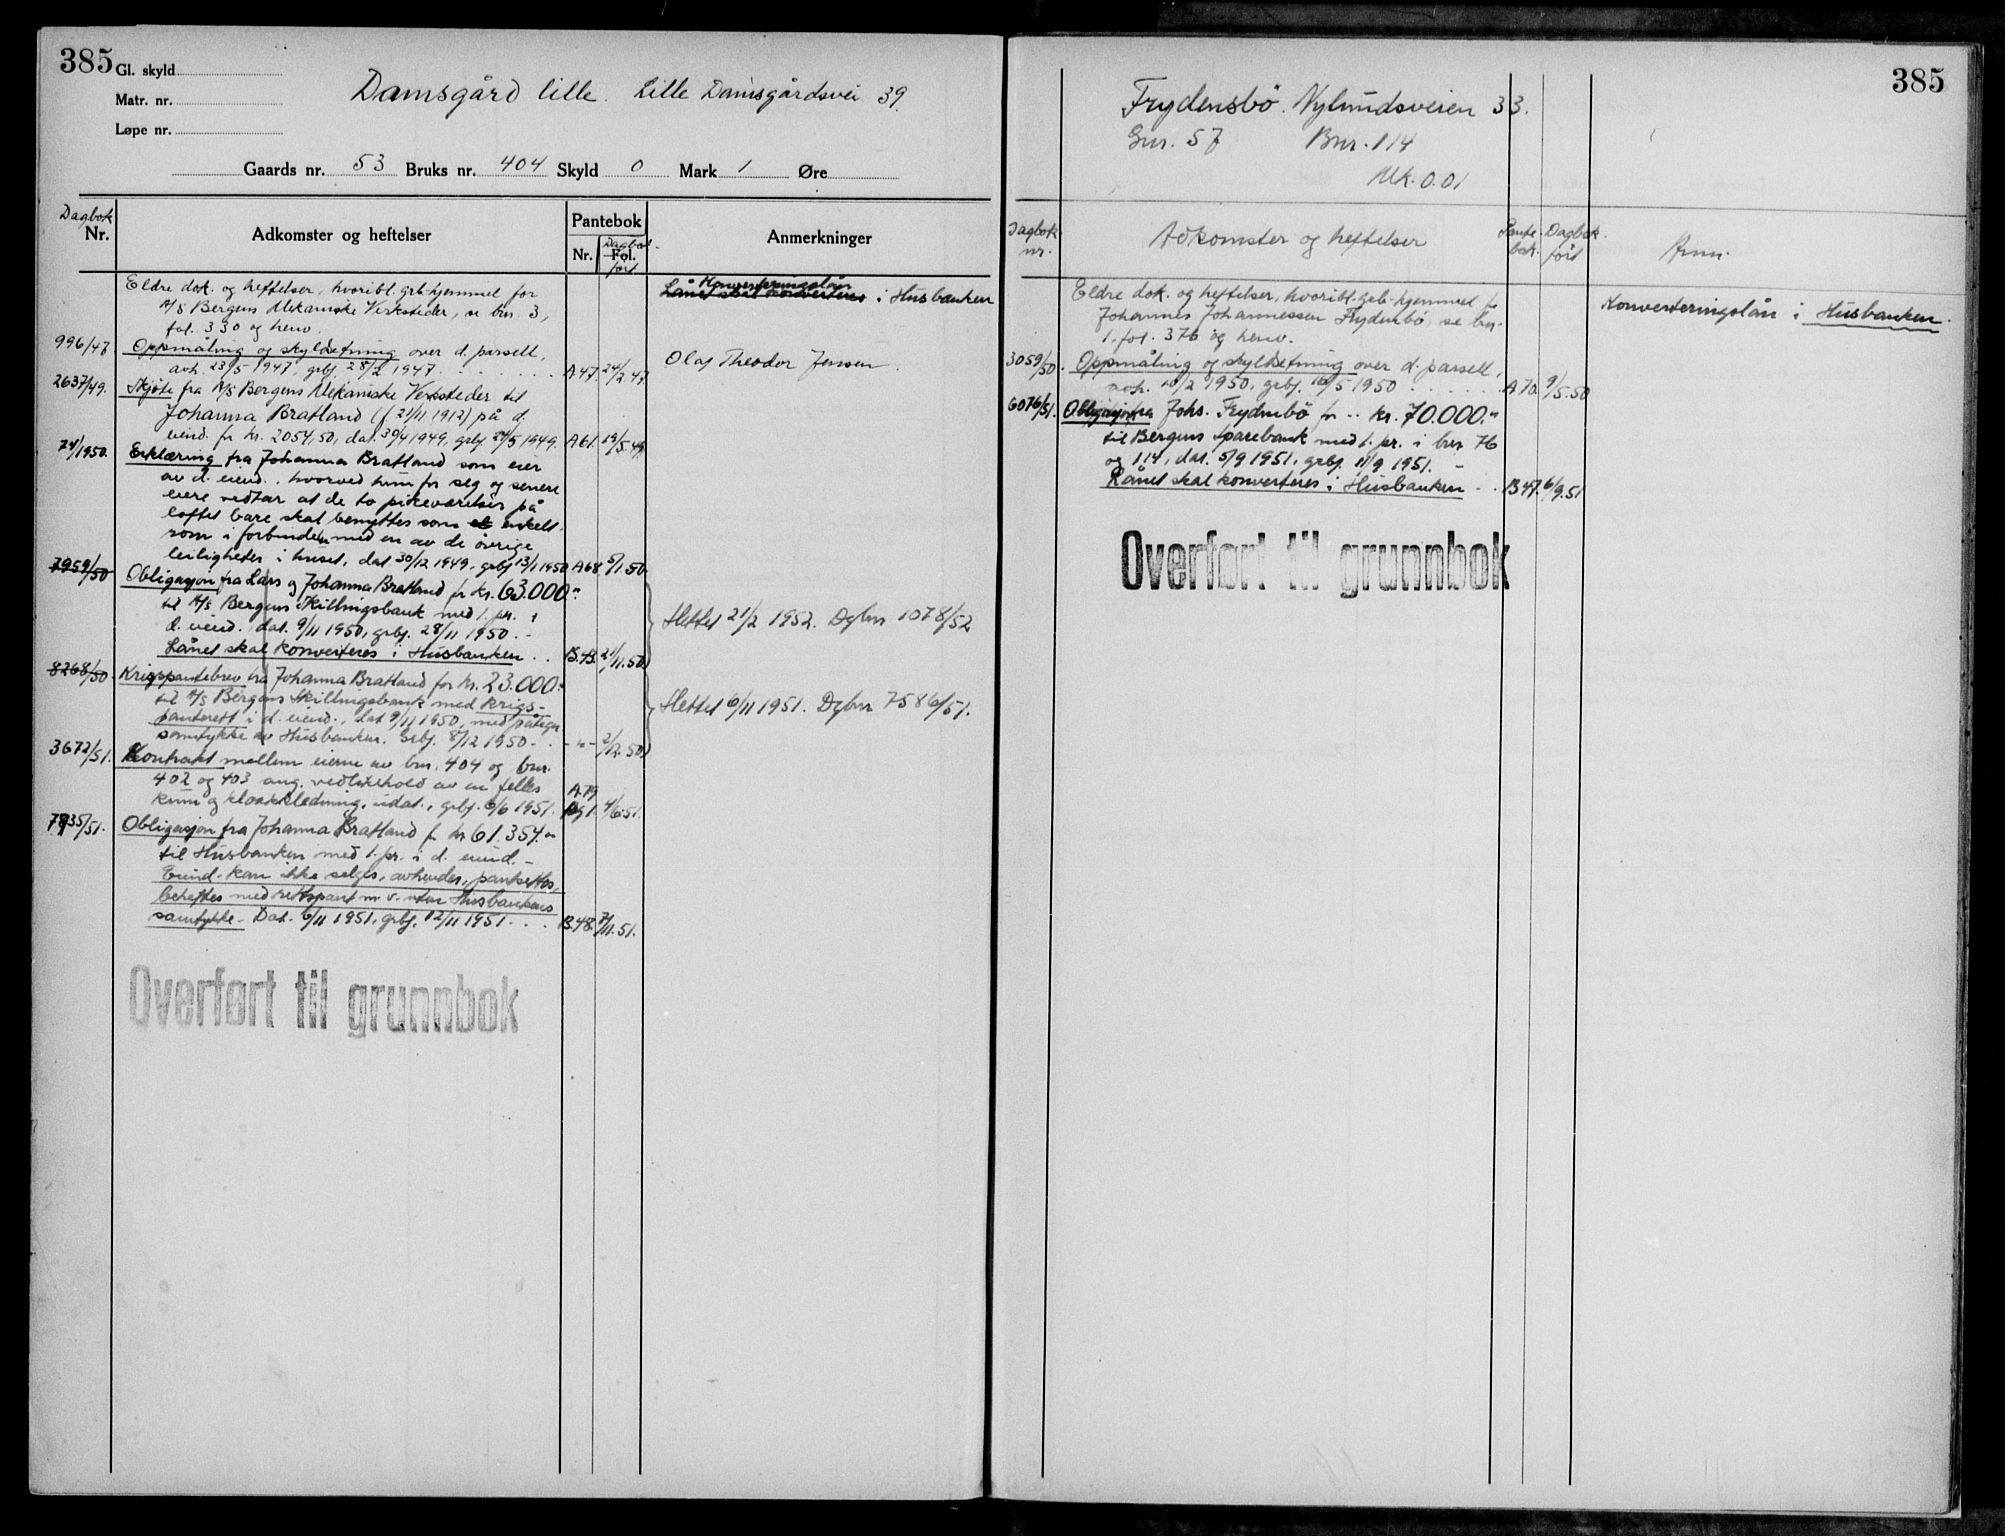 385
Gl. skyld
Matr. nr.
Løpe nr.
Damsgård lille. Lille Damsgårdsvei 39.
Gaards nr. 53 Bruks nr. 404 Skyld 0 Mark 1 Øre
Dagbok Nr.
Adkomster og heftelser
Pantebok
Nr. Fol. Dagbok- ført
Anmerkninger
Eldre dok. og heftelser, hvoribl. grb.hjemmel for
A/S Bergens Mekaniske Verksteder, se bnr. 3,
fol. 330 og henv.
Konverteringslån
Lånet skal konverteres i Husbanken
996/47 Oppmåling og skyldsetning over d. parsell,
avh. 23/5 1947, grbj. 28/2 1947. A47. 24/2 47.
Olaf Theodor Jensen.
2637/49. Skjøte fra A/S Bergens Mekaniske Verksteder til
Johanna Bratland (f 21/11 1912) på d.
eiend. for kr. 2054,50, dat. 30/4 1949, grbj. 24/5 1949. A61. 19/5.49
74/1950. Erklæring fra Johanna Bratland som eier
av d. eiend., hvorved hun for seg og senere
eiere vedtar at de to pikeværelser på
loftet bare skal benyttes som et enkelt
rom i forbindelse med en av de øvrige
leiligheter i huset, dat 30/12 1949, grbj 13/1 1950 A68 5/1.50.
7959/50 Obligasjon fra Lars og Johanna Bratland for kr. 63.000."
til A/S Bergens Skillingsbank med 1. pr. i
d. eiend. dat. 9/11 1950, grbj. 28/11 1950.-
Lånet skal konverteres i Husbanken . . B.43. 21/11.50
Slettet 21/2 1952. Dgbnr 1078/52
8268/50. Krigspantebrev fra Johanna Bratland for kr. 23.000."
til A/S Bergens Skillingsbank med krigs-
panterett i d. eiend., dat 9/11 1950, med påtegn
samtykke av Husbanken. Grbj. 8/12 1950. - " - 2/12.50
Slettet 6/11 1951. Dgbnr 7586/51.
3672/51. Kontrakt mellom eierne av bnr. 404 og bnr.
402 og 403 ang. vedlikehold av en felles
kum og kloakkledning, udat., grbj. 6/6 1951. A.79 4/6.51.
7735/51. Obligasjon fra Johanna Bratland for kr 61.354."
til Husbanken med 1. pr. i d. eiend.-
Eiend. kan ikke selges, avhendes, pantsettes,
beheftes med rettspant m.v. uten Husbankens
samtykke- Dat. 6/11 1951, grbj. 12/11 1951. . . B.48. 7/11.51.
Overført til grunnbok
385
Frydensbö. Nylundsveien 33.
Gnr. 57 Bnr. 114
Mk. 0.01
Dagbok nr.
Adkomster og heftelser
Pante- bok.
Dagbok ført
Anm.
Eldre dok. og heftelser, hvoribl. grb.hjemmel f.
Johannes Johannessen Frydenbö, se bnr.
1. fol. 376 og henv.
Konverteringslån i Husbanken.
3059/50. Oppmåling og skyldsetning over d. parsell,
avh. 10/2 1950, grbj. 16/5 1950 A70. 9/5.50
6076/51. Obligasjon fra Johs. Frydenbö for .. kr. 70.000."
til Bergens Sparebank med 1. pr. i bnr 76
og 114, dat. 5/9 1951, grbj. 11/9 1951. -
Lånet skal konverteres i Husbanken - . B47. 6/9.51
Overført til grunnbok